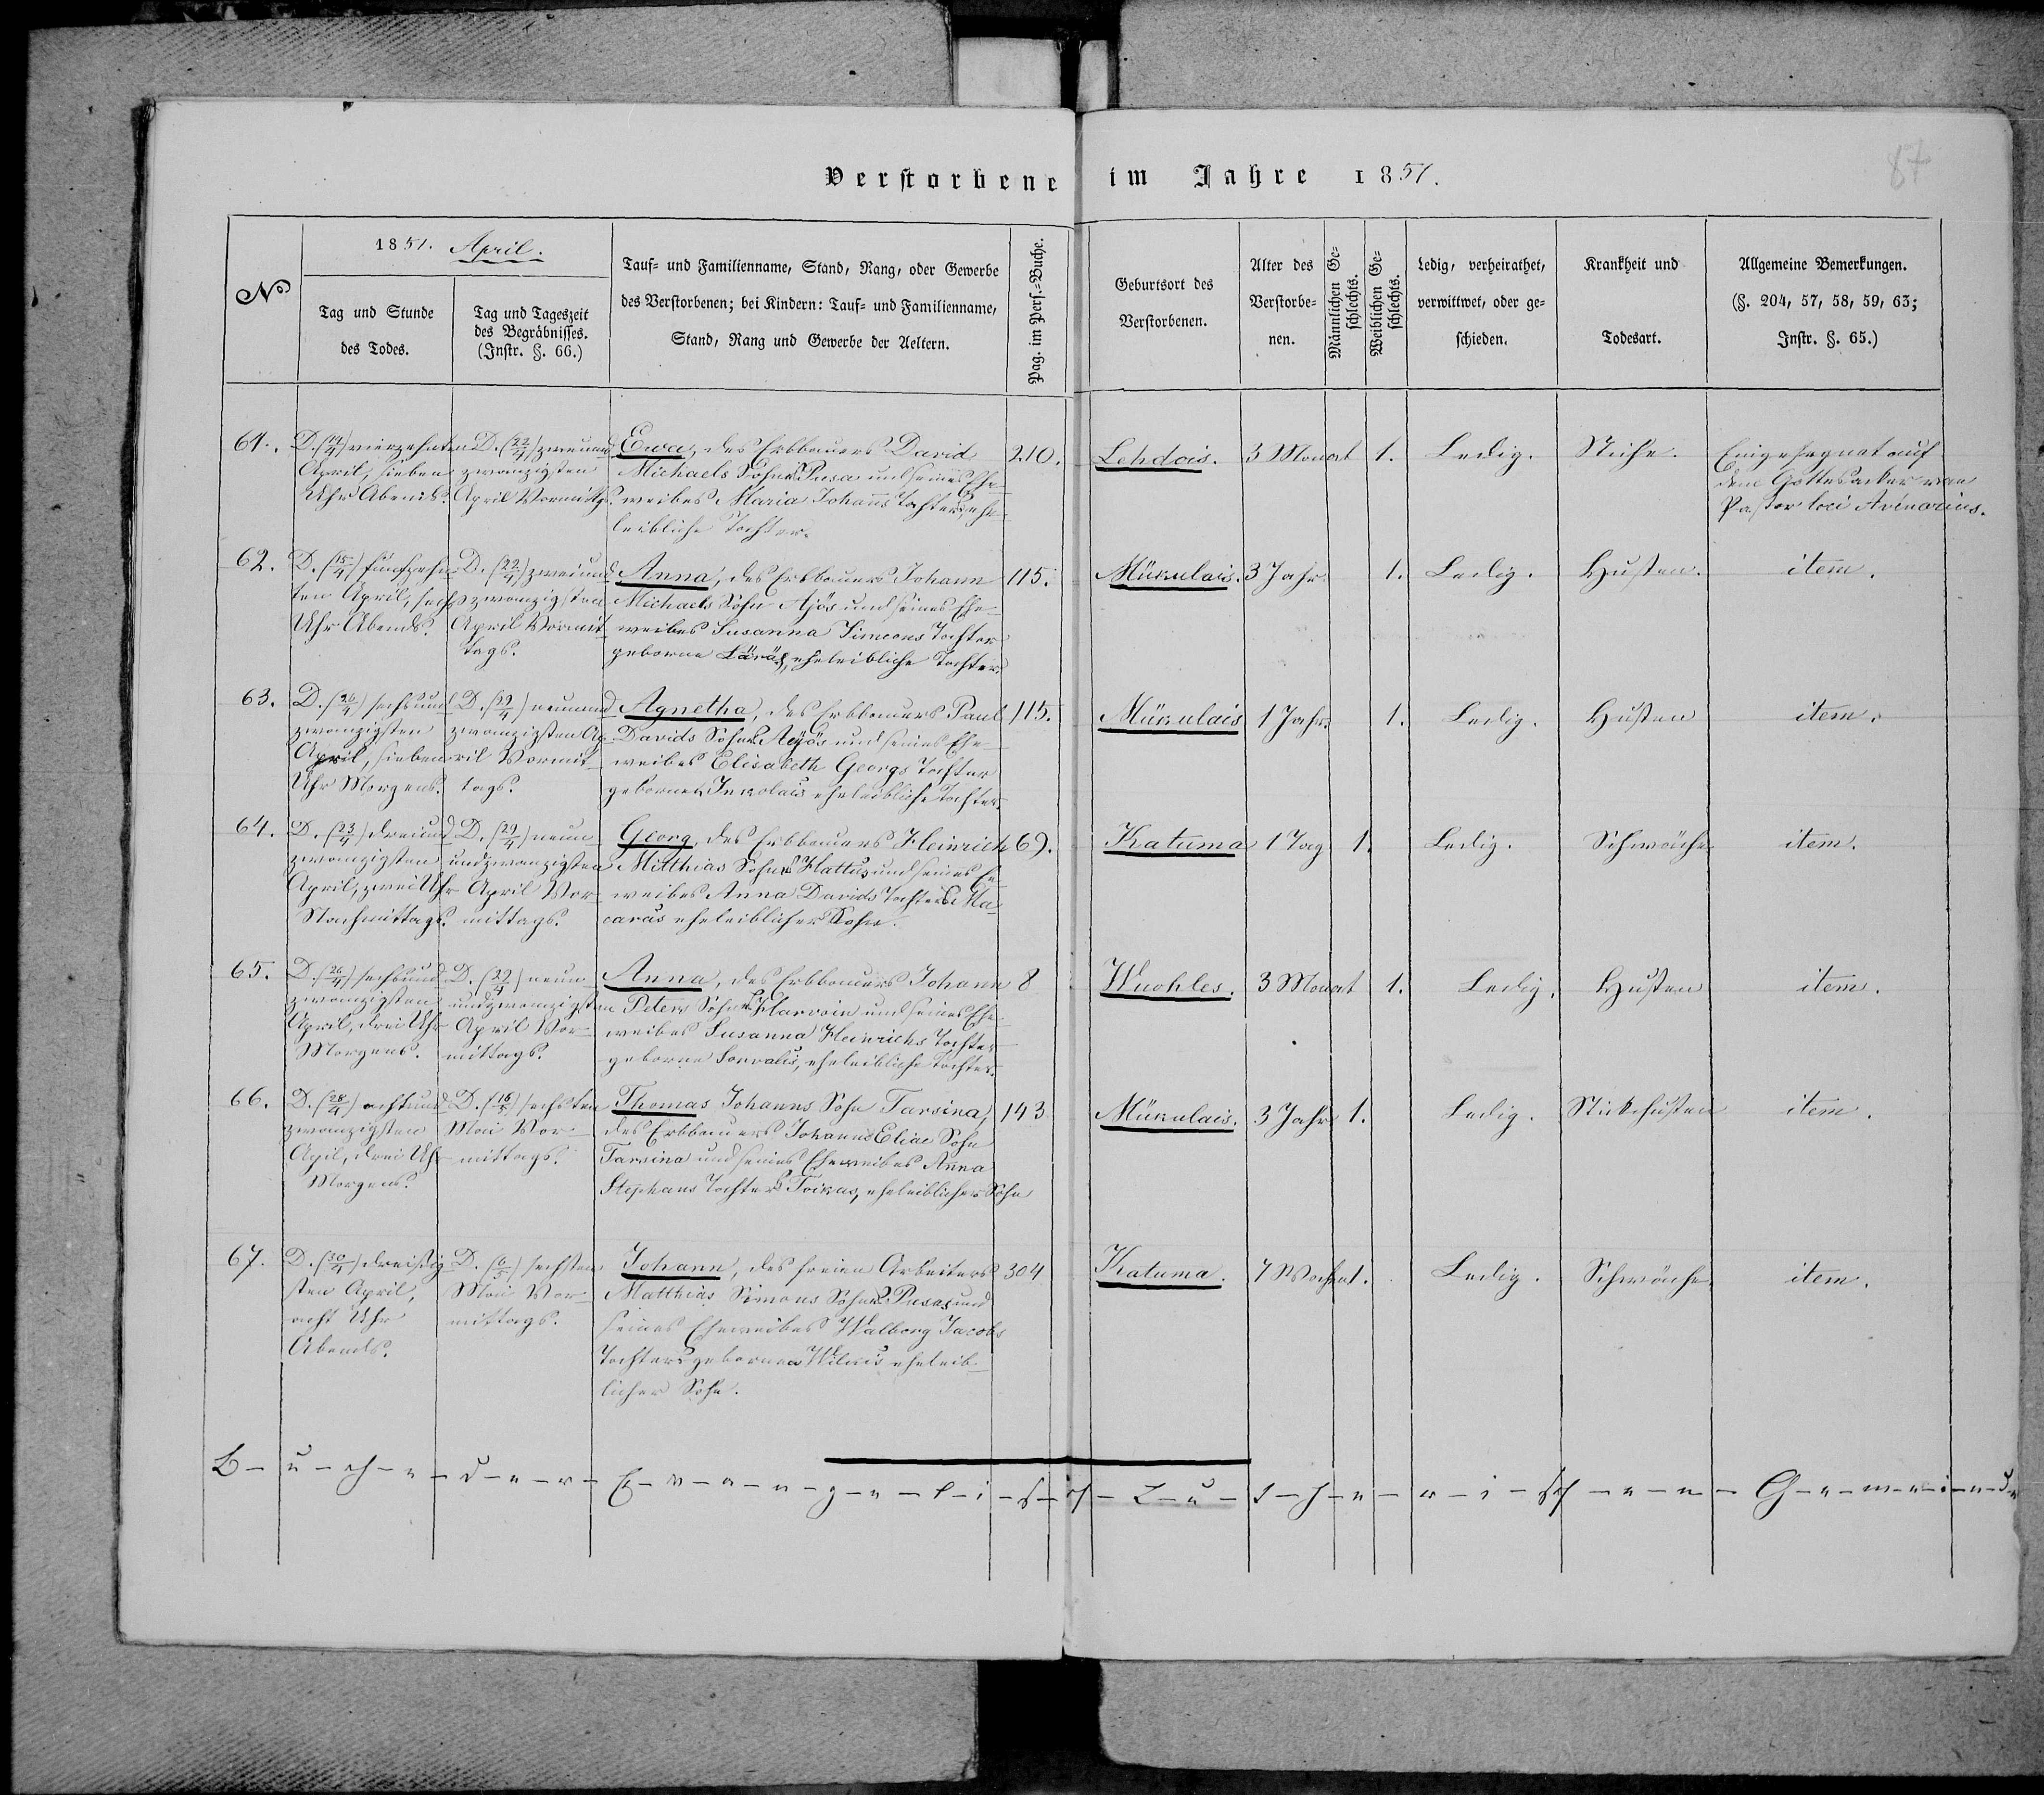 Verstorbene im Jahre 1851.
87
№
1851. April.
Tag und Stunde
des Todes.
Tag und Tageszeit
des Begräbnisses.
(Instr. §. 66.)
Tauf- und Familienname, Stand, Rang, oder Gewerbe
des Verstorbenen; bei Kindern: Tauf- und Familienname,
Stand, Rang und Gewerbe der Aeltern.
Pag. im Pers.-Buche.
Geburtsort des
Verstorbenen.
Alter des
Verstorbe-
nen.
Männlichen Ge-
schlechts.
Weiblichen Ge-
schlechts.
Ledig, verheirathet,
verwittwet, oder ge-
schieden.
Krankheit und
Todesart.
Allgemeine Bemerkungen.
(§. 204, 57, 58, 59, 63;
Instr. §. 65.)
61.
D. (14/4) vierzehnten
April, sieben
Uhr Abends.
D. (22/4) zweiund
zwanzigsten
April Vormittgs.
Ewa, des Erbbauers David
Michaels Sohnes Pusa und seines Ehe-
weibes Maria Johanns Tochter, ehe-
leibliche Tochter.
210.
Lehdois.
3 Monat
1.
Ledig.
Eingesegnet auf
dem Gottesacker von
Pastor loci Avinarius.
62.
D. (15/4) fünfzehn-
ten April, sechs
Uhr Abends.
D. (22/4) zweiund
zwanzigsten
April Vormit-
tags.
Anna, des Erbbauers Johann
Michaels Sohn Ajös und seines Ehe-
weibes Susanna Simeons Tochter
geborne Läräs, eheleibliche Tochter.
115.
Mükulais.
3 Jahr.
1.
Ledig.
Husten.
item.
63.
D. (26/4) sechsund
zwanzigsten
April, sieben
Uhr Morgens.
D. (29/4) neunund
zwanzigsten Ap-
ril Vormit-
tags.
Agnetha, des Erbbauers Paul
Davids Sohnes Aÿös und seines Ehe-
weibes Elisabeth Georgs Tochter
gebornen Inkolais eheleibliche Tochter.
115.
Mükulais
1 Jahr.
1.
Ledig.
Husten
item.
64.
D. (23/4) dreiund
zwanzigsten
April, zwei Uhr
Nachmittags.
D. (29/4) neun
undzwanzigsten
April Vor-
mittags.
Georg, des Erbbauers Heinrich
Matthias Sohnes Hattus und seines Ehe-
weibes Anna Davids Tochter Na-
caräs eheleiblicher Sohn.
69.
Katuma
1 Tag
1.
Ledig.
Schwäche
item.
65.
D. (26/4) sechsund
zwanzigsten
April, drei Uhr
Morgens.
D. (29/4) neun
undzwanzigsten
April Vor-
mittags.
Anna, des Erbbauers Johann
Peters Sohnes Harwoin und seines Ehe-
weibes Susanna Heinrichs Tochter
geborne Sorvalis, eheleibliche Tochter.
8
Wuohles.
3 Monat
1.
Ledig.
Husten
item.
66.
D. (28/4) achtund
zwanzigsten
Apil, drei Uhr
Morgens.
D. (16/5) sechsten
Mai Vor-
mittags.
Thomas Johanns Sohn Tarsina,
des Erbbauers Johanns Eliae Sohn
Tarsina und seines Eheweibes Anna
Stephans Tochter Toikas, eheleiblicher Sohn
143
Mükulais.
3 Jahr
1.
Ledig.
Stickhusten
item.
67.
D. (30/4) dreißig-
sten April,
acht Uhr
Abends.
D. (6/5) sechsten
Mai Vor-
mittags.
Johann, des freien Arbeiters
Matthias Simons Sohnes Pusas und
seines Eheweibes Walborg Jacobs
Tochter gebornen Wilkis eheleib-
licher Sohn.
304
Katuma.
7 Wochen
1.
Ledig.
Schwäche
item.
B-u-ch-e-d-e-r-E-v-a-n-g-e-l-i-s-ch-L-u-t-h-e-r-i-sch-e-n-G-e-m-e-i-n-d-e